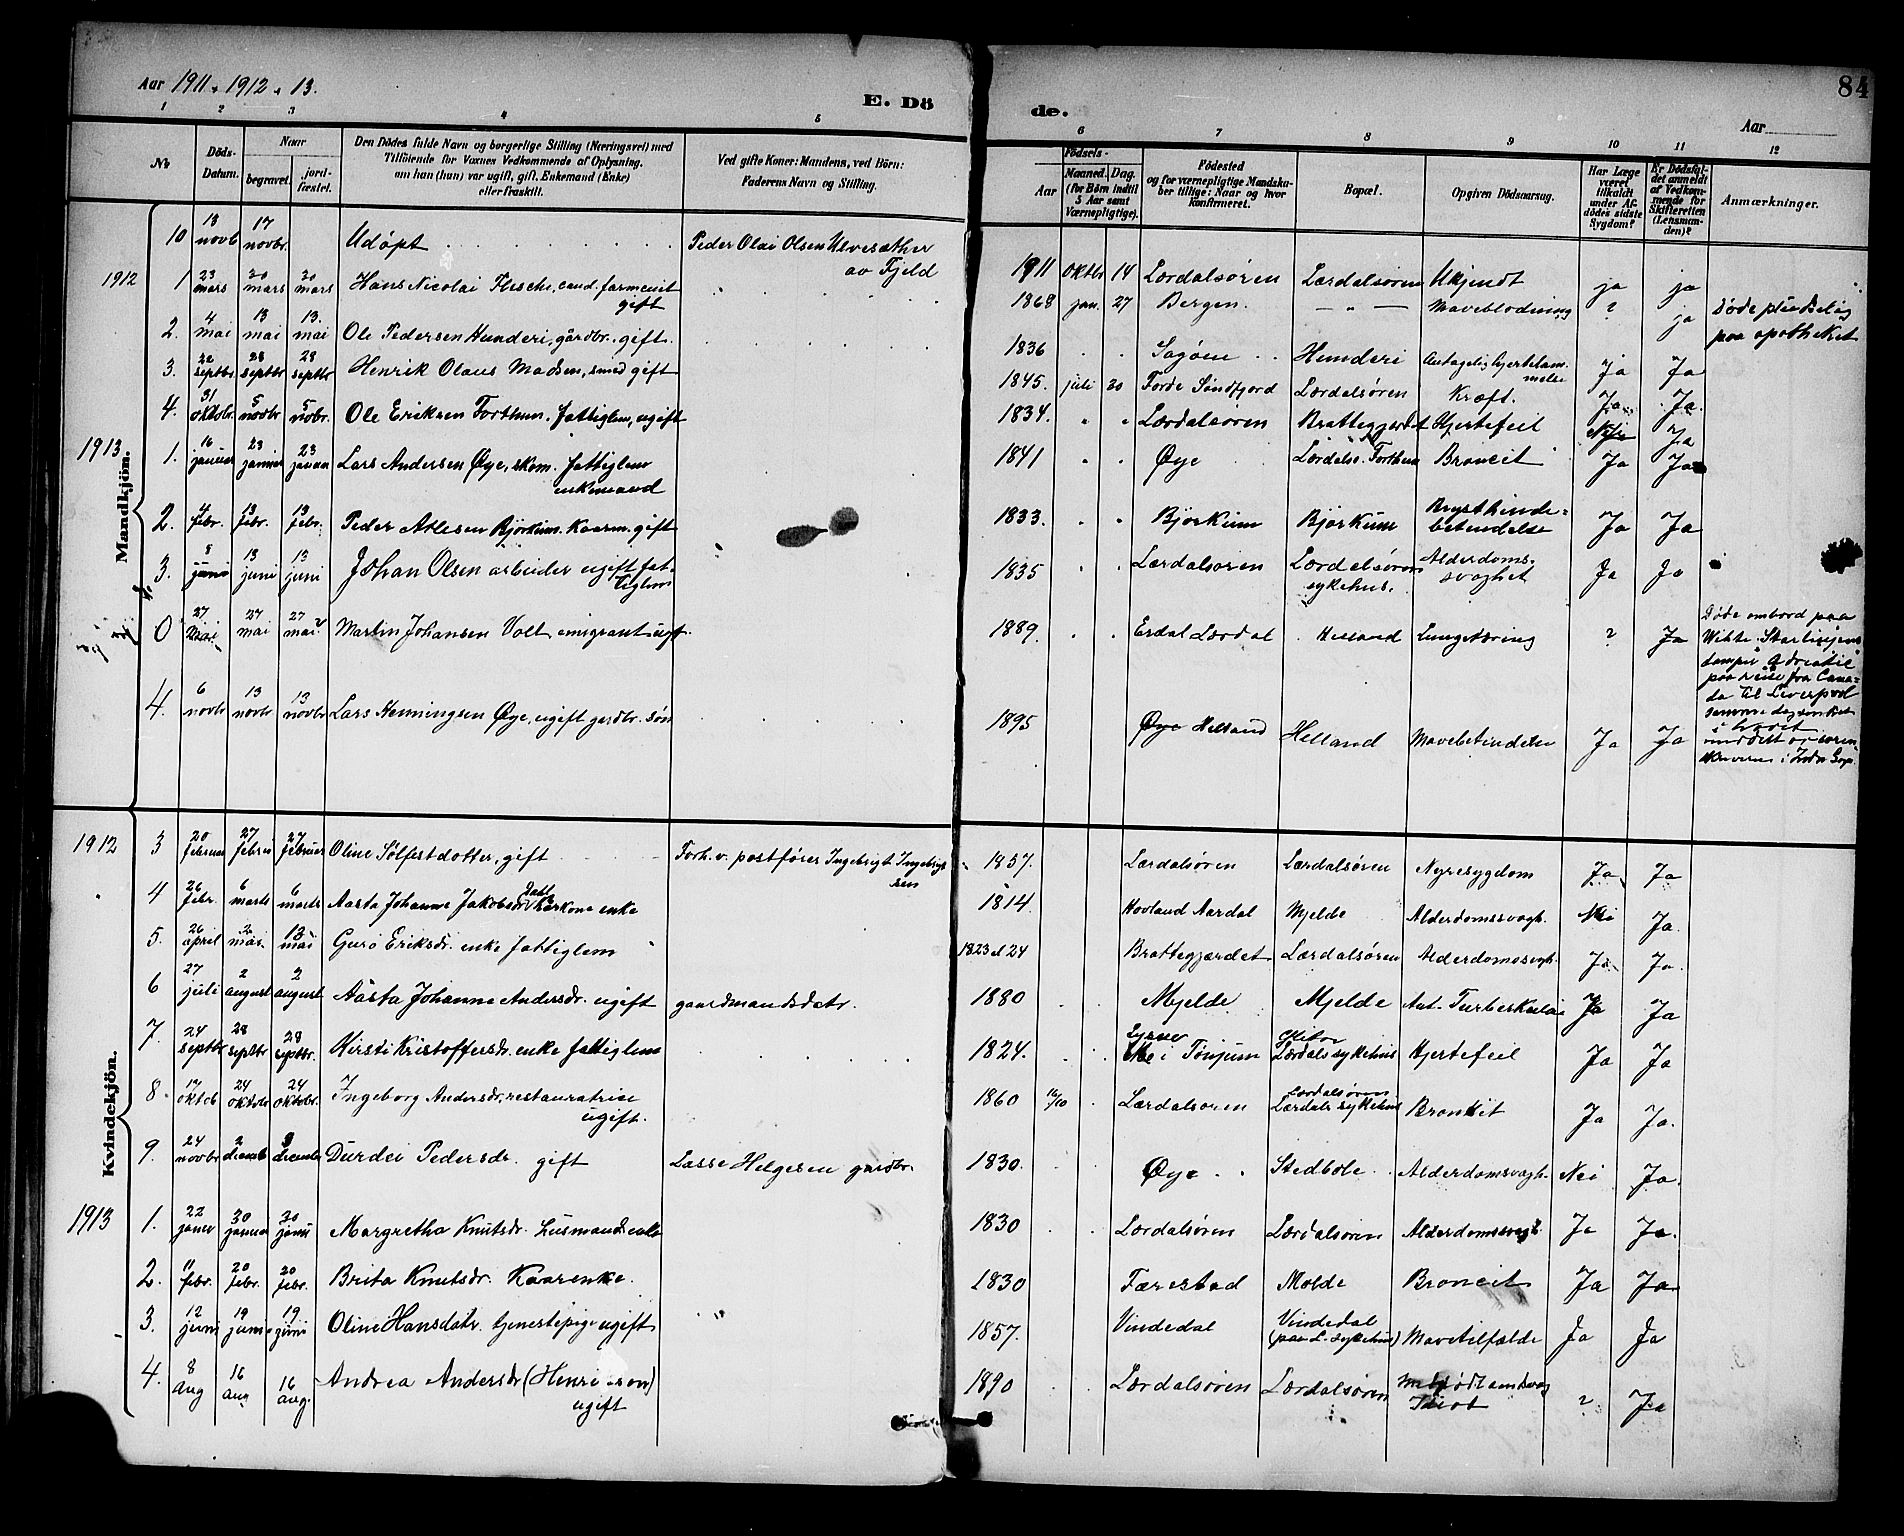 Aar 1911, 1912, 13.
E. Dö
de.
84
Aar
1 2 3 4 5 6 7 8 9 10 11 12
No
Döds-Datum.
Naar
begravet.
jordfæstet.
Den Dödes fulde Navn og borgerlige Stilling (Næringsvei) med
Tilföiende for Voxnes Vedkommende af Oplysning,
om han (hun) var ugift, gift, Enkemand (Enke)
eller fraskilt.
Ved gifte Koner: Mandens, ved Börn:
Faderens Navn og Stilling.
Födsels-
Aar
Maaned. Dag.
(for Börn indtil
5 Aar samt
Værnepligtige).
Födested
og for værnepligtige Mandska-
ber tillige: Naar og hvor
konfirmeret.
Bopæl.
Opgiven Dödsaarsag.
Har Læge
været
tilkaldt
under Af-
dödes sidste
Sygdom?
Er Dödsfal-
det anmeldt
af Vedkom-
mende for
Skifteretten
(Lensman-
den)?
Anmærkninger.
Mandkjön.
10 13 novb 17 novbr. Udöpt Peder Olai Olsen Ulvesæther av Fjeld 1911 oktbr 14 Lærdalsören Lærdalsören Ukjendt ja ja
1912 1 23 mars 20 mars 20 mars Hans Nicolai Flesche, cand. farmceut gift 1868 jan. 27 Bergen. — „ — Maveblødning ? ja Døde pludselig paa apotheket
2. 4 mai 13 mai 13. mai Ole Pedersen Hunderi, gårdbr. gift. 1836 Hunderi Antagelig hjertelammelse Ja Ja
3. 22 septbr 28 septbr 28 septbr Henrik Olaus Madsen, smed gift 1845. juli 20 Förde Söndfjord Lærdalsören Kræft. Ja Ja.
4. 31 oktobr. 5 novbr 5 novbr. Ole Eriksen Forthun. fattiglem, ugift 1834. Lærdalsören Brattegjerdet Hjertefeil Nei Ja
1913 1. 16 januar 23 januar 23 januar Lars Andersen Øye, skom. fattiglem enkemand 1841 Øye Lærdals. Forthun Broncit Ja Ja
2. 4 febr. 13 febr. 13 febr. Peder Atlesen Bjørkum. Kaarm. gift 1833. Bjørkum Bjørkum Brysthindebetendelse Ja Ja
3. 8 juni 13 juni 13 juni Johan Olsen arbeider ugift fattiglem 1835 Lærdalsören Lærdalsören sykehus. Alderdomssvaghet Ja Ja
0 27 mai 27 mai 27 mai Martin Johansen Volt emigrant ugft. 1889. Erdal Lærdal Helland Lungetæring ? Ja Døde ombord paa White Starlinjens damper "Adriatic" paa reise fra Canada til Liverpool samme dag senket i havet
4. 6 novbr 13 novbr 13 novbr Lars Henningsen Øye, ugift gardbr. søn 1895 Øye Helland Helland Mavebetendelse Ja Ja
Kvindekjön.
1912 3 20 februar 27 febru 27 februar Oline Sølfestdotter, gift Forh. v. postfører Ingebrigt Ingebrigtsen 1857. Lærdalsören Lærdalsören Nyresygdom Ja Ja
4 26 febr. 6 marts 6 marts Aasta Johanne Jakobsdr. enke 1814 Hovland Aardal Mjelde Alderdomssvagh. Nei Ja.
5. 26 april 2 mai. 13 mai Guro Eriksdr. enke fattiglem 1823 el 24 Brattegjærdet Lærdalsören Alderdomssvagh. Ja Ja.
6 27 juli 2 august 2 august Aasta Johanne Andersdr. ugift gaardmandsdatr. 1880 Mjelde Mjelde Ant. Turberkulose Ja Ja
7. 24 septbr 28 septbr 28 septbr. Kirsti Kristoffersdr. enke fattiglem 1824. i Tønjum Lærdals sykehus Hjertefeil Ja Ja
8. 17 oktob 24 oktobr 24 oktobr. Ingeborg Andersdr. restauratrise ugift. 1860 16/10 Lærdalsören Lærdalsören Lærdals sykehus Bronkit Ja Ja.
9. 24 novbr 2 decemb december Durdei Pedersdr. gift Lasse Helgesen gardbr. 1830. Øye Stedbole Alderdomsvagh. Nei Ja.
1913 1. 22 januar 30 januar 30 januar Margretha Knutsdr. husmandsenke 1830 Lærdalsören Lærdalsören Alderdomssvagh. Ja Ja.
2. 11 febr. 20 febr. 20 febr. Brita Knutsdr. Kaarenke. 1830 Færestad Molde Broncit Ja Ja
3. 12 juni 19 juni 19 juni Oline Hansdatr. tjenestepige ugift 1857. Vindedal Vindedal (paa L. sykehus) Mavetilfælde Ja Ja
4. 8 aug 16 aug 16 aug. Andrea Andersdr (Henri son) ugift 1890 Lærdalsören Lærdalsören Idiot ? Ja